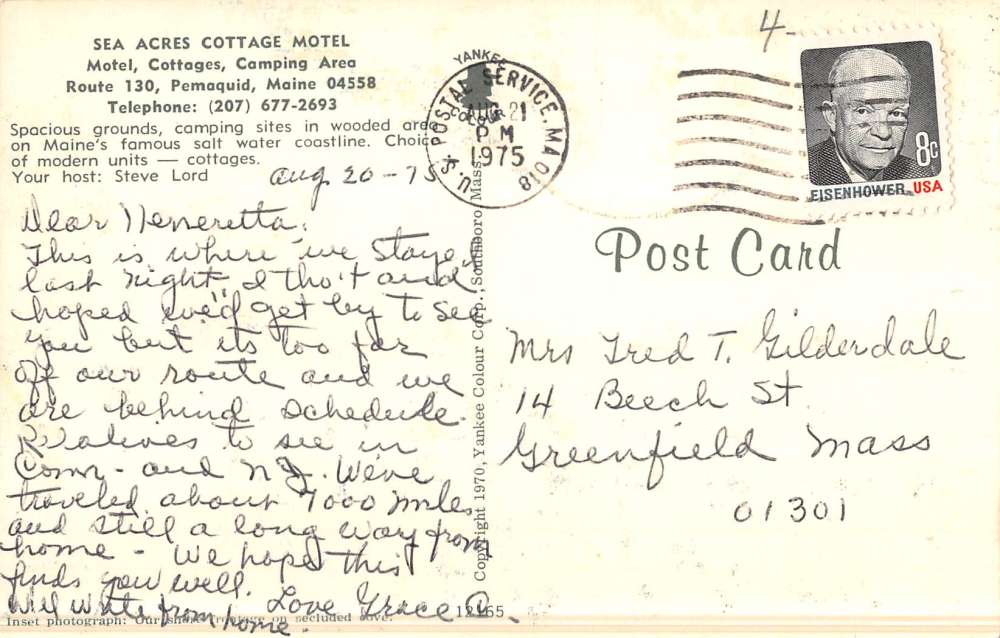 SEA ACRES COTTAGE MOTEL
Motel, Cottages, Camping Area
Route 130, Pemaquid, Maine 04558
Telephone: (207) 677-2693
Spacious grounds, camping sites in wooded area
on Maine's famous salt water coastline. Choice
of modern units — cottages.
Your host: Steve Lord
Aug 20-75
Dear
This is where we Stayed
last night I tho't and
hoped we'd get by to see
you but its too far
off our route and we
are behind schedule.
Relatives to see in
Conn - and N.J. We've
traveled about 7000 miles
and still a long way from
home - We hope this
finds you well.
Will write from home. Love Grace
Inset photograph: Our shore frontage on secluded cove.
12165
YANKEE
COLOUR
Copyright 1970, Yankee Colour Corp., Southboro, Mass.
U.S. POSTAL SERVICE, MA 018
AUG 21
PM
1975
4-
8c
EISENHOWER USA
Post Card
Mrs Fred T. Gilderdale
14 Beech St
Greenfield Mass
01301